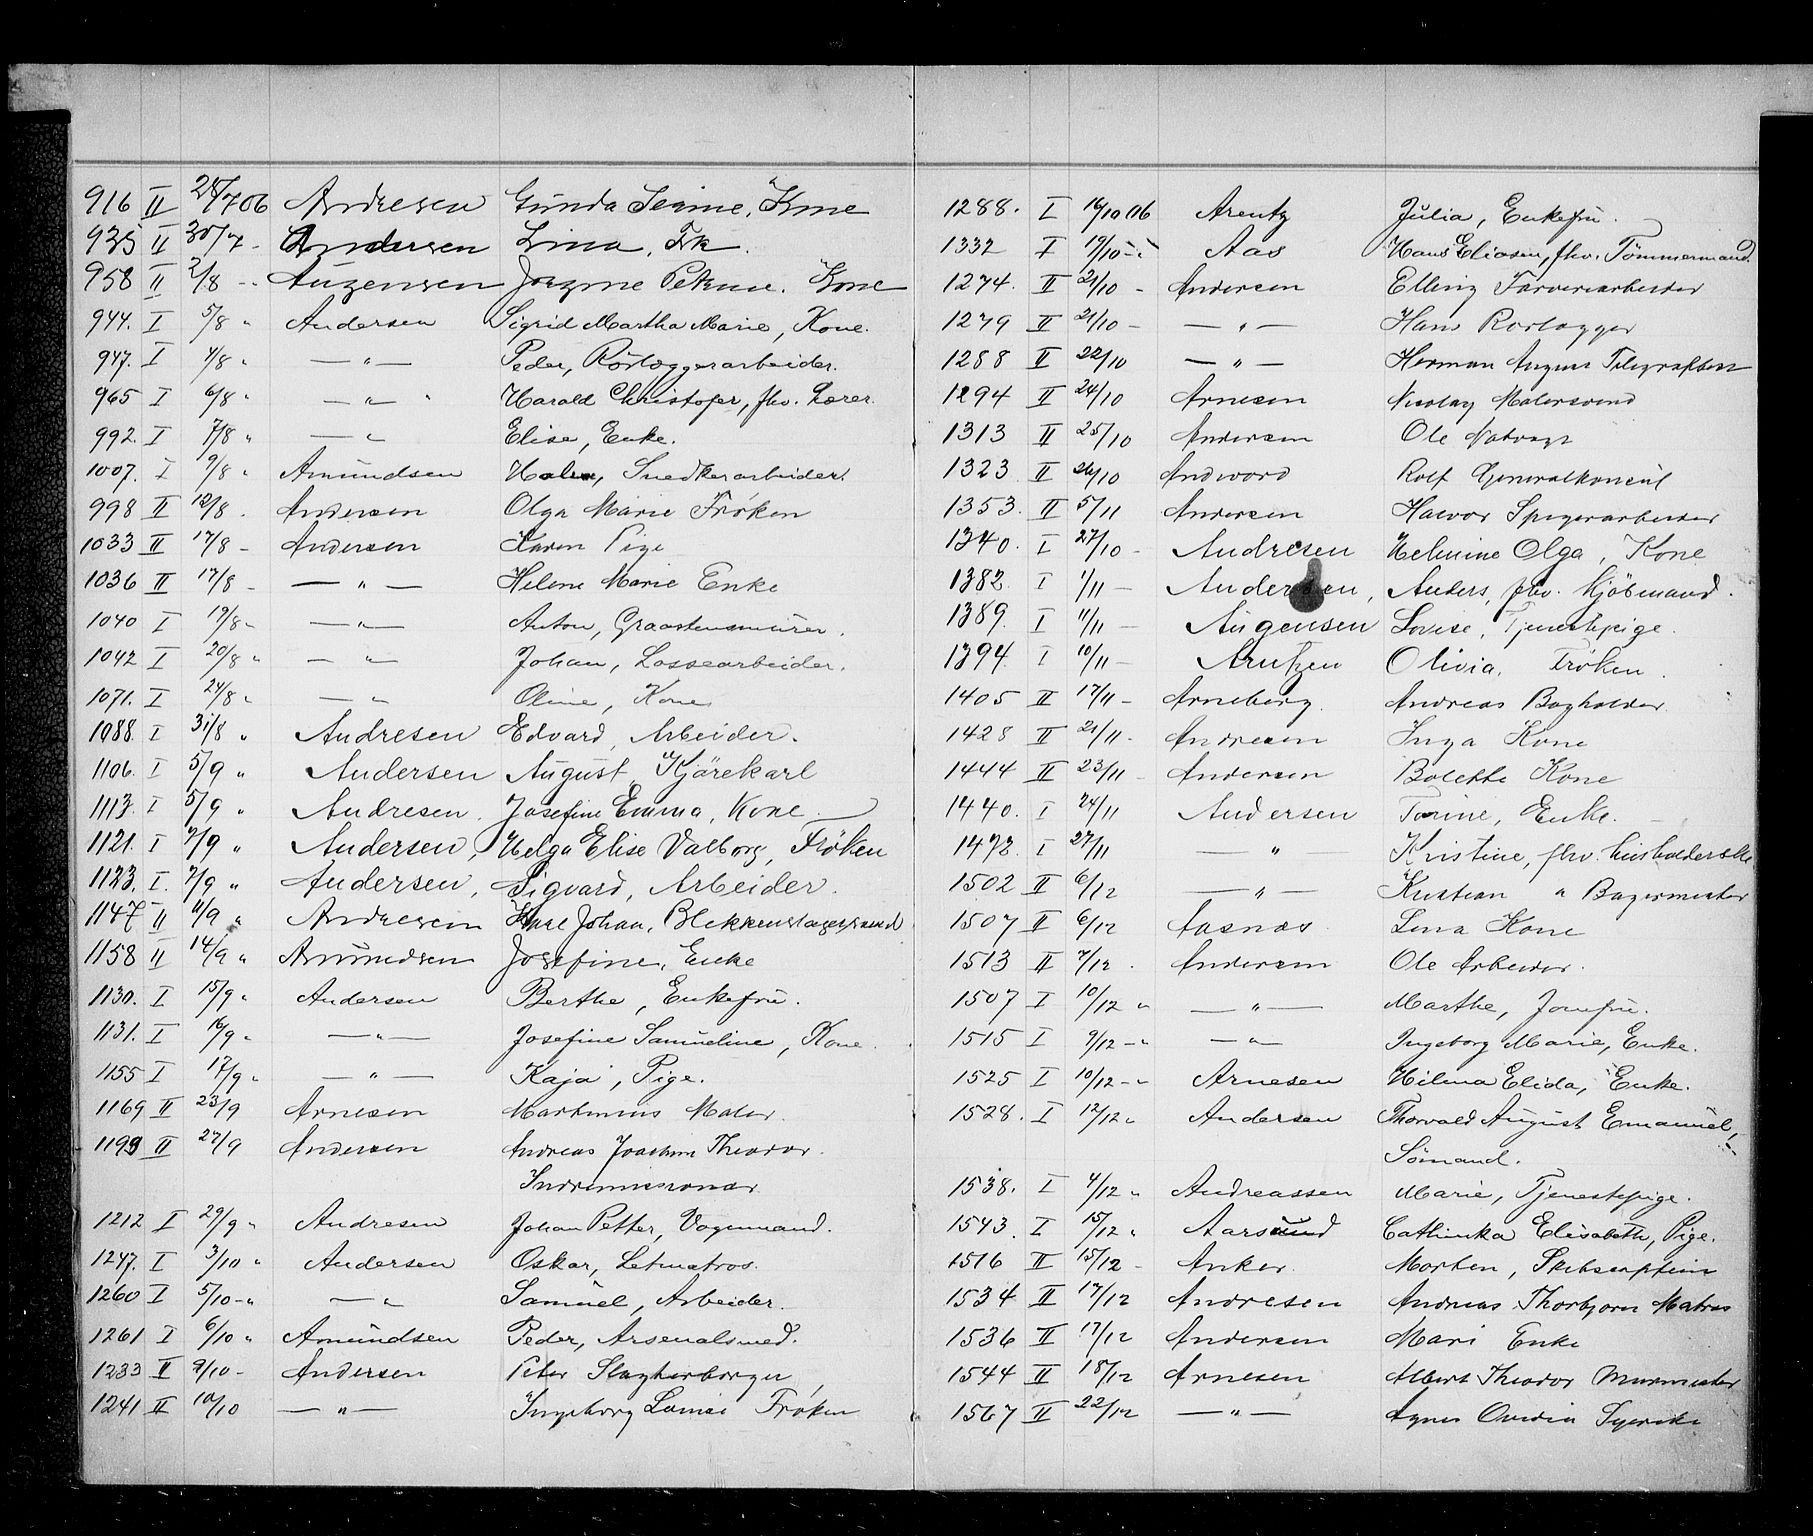 916 II 28/7 06 Andresen Gunda Jenine, Kone
935 II 30/7 - Andersen Lina, Frk.
958 II 2/8 - Augensen Jorgine Petrine. Kone
944. I 5/8 " Andersen Sigrid Martha Marie, Kone.
947. I 4/8 " — " — Peder, Rörlæggerarbeider.
965 I 6/8 " — " — Harald Christofer, fhv. Lærer.
992. I 7/8 " — " Elise, Enke.
1007. I 9/8 " Amundsen Snedkerarbeider.
998 II 12/8 . Andersen Olga Marie Frøken
1033 II 17/8 - Andersen Karen Pige
1036 II 17/8 - — " — Helene Marie Enke
1040 I 19/8 " — " — Anton, Graastensmurer.
1042 I 20/8 " — " Johan, Lossearbeider.
1071. I 24/8 " — " Oline, Kone
1088 I 31/8 " Andresen Edvard, Arbeider.
1106. I 5/9 " Andersen August, Kjørekarl
1113. I 5/9 " Andresen. Josefine Emma, Kone
1121. I 7/9 " Andersen, Helga Elise Valborg, Frøken
1123. I. 7/9 " Andersen, Sigvard, Arbeider.
1147 II 11/9 " Andresen Johan, Blikkenslagersvend
1158 II 14/9 " Amundsen Josefine, Enke
1130. I 15/9 " Andersen Berthe, Enkefru.
1131. I 16/9 " — " — Josefine Samueline, Kone.
1155 I 17/9 " — " — Kaja, Pige.
1169 II 23/9 Arnesen Martinius Maler.
1199 II 27/9 Andersen Andreas Joachim Theodor.
Indremissionær
1212 I 29/9 " Andresen Johan Petter, Vognmand.
1247. I 3/10 " Andersen Oskar, Letmatros.
1260 I 5/10 - " — " Samuel, Arbeider.
1261 I 6/10 " Amundsen Peder, Arsenalsmed.
1233 II 9/10 - Andersen Peter Slagterborger
1241 II 10/10 — " — Ingeborg Lovise Frøken
1288. I 16/10 06 Arentz Julia, Enkefru.
1332 I 19/10 - " Aas Hans Eliasen, fhv. Tömmermand.
1274. II 21/10 - Andersen Elling Farveriarbeider
1279 II 21/10 - — " — Hans Rørlægger
1288 II 22/10 — " — Herman August Telegrafbest
1294 II 24/10 Arnesen Nicolay Malersvend
1313 II 25/10 Andersen Ole Natvagt
1323 II 26/10 Andvord Rolf Generalkonsul
1353. II 5/11 Andersen Halvor Spigerarbeider
1340. I 27/10 - Andresen Helmine Olga, Kone
1382. I 1/11 - Andersen, Anders, fhv. Kjöbmand.
1389. I 11/11 - Augensen Lovise, Tjenestepige.
1394. I 10/11 - Arntzen Olivia, Frøken.
1405 II 17/11 - Arneberg. Andreas Bogholder.
1428 II 21/11 - Andresen Inga Kone
1444 II 23/11 - Andersen Bolette Kone
1440. I 24/11 Andersen Torine, Enke.
1473. I 27/11 — " — Kristine, fhv. husholderske
1502 II 6/12 — " — Kristian " Bagermester
1507 II 6/12 Aasnæs Lina Kone
1513 II 7/12 . Andersen Ole Arbeider.
1507 I 10/12 " — " — Marthe, Jomfru.
1515 I 9/12 - " — " — Ingeborg Marie, Enke.
1525 I 10/12 - " Arnesen Hilma Elida, Enke.
1528. I 12/12 " Andersen Thorvald August Emanuel,
Sömand.
1538. I 4/12 " Andreassen Marie, Tjenestepige.
1543. I 15/12 " Aarsund Cathinka Elisabeth, Pige.
1516 II 15/12 - Anker Morten, Skibscaptein
1534 II 17/12 Andresen Andreas Thorbjørn Matros
1536 II 17/12 Andersen Mari Enke
1544 II 18/12 Arnesen Albert Theodor Murmester
1567 II 22/12 — " — Agnes Ovidia Syerske